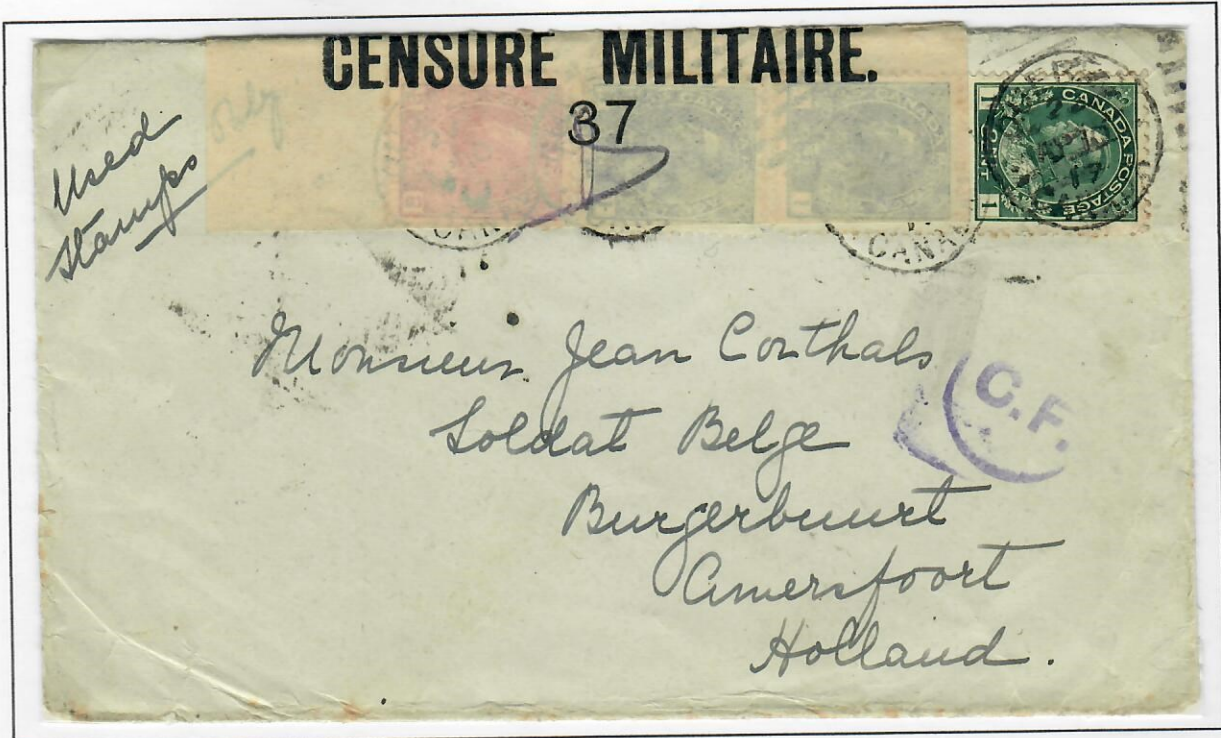 CENSURE MILITAIRE.
37
Used
Stamps
CANADA POSTAGE
1 1
CANA
C.F.
Monsieur Jean Conthals
Soldat Belge
Burgerbuurt
Amersfoort
Holland.